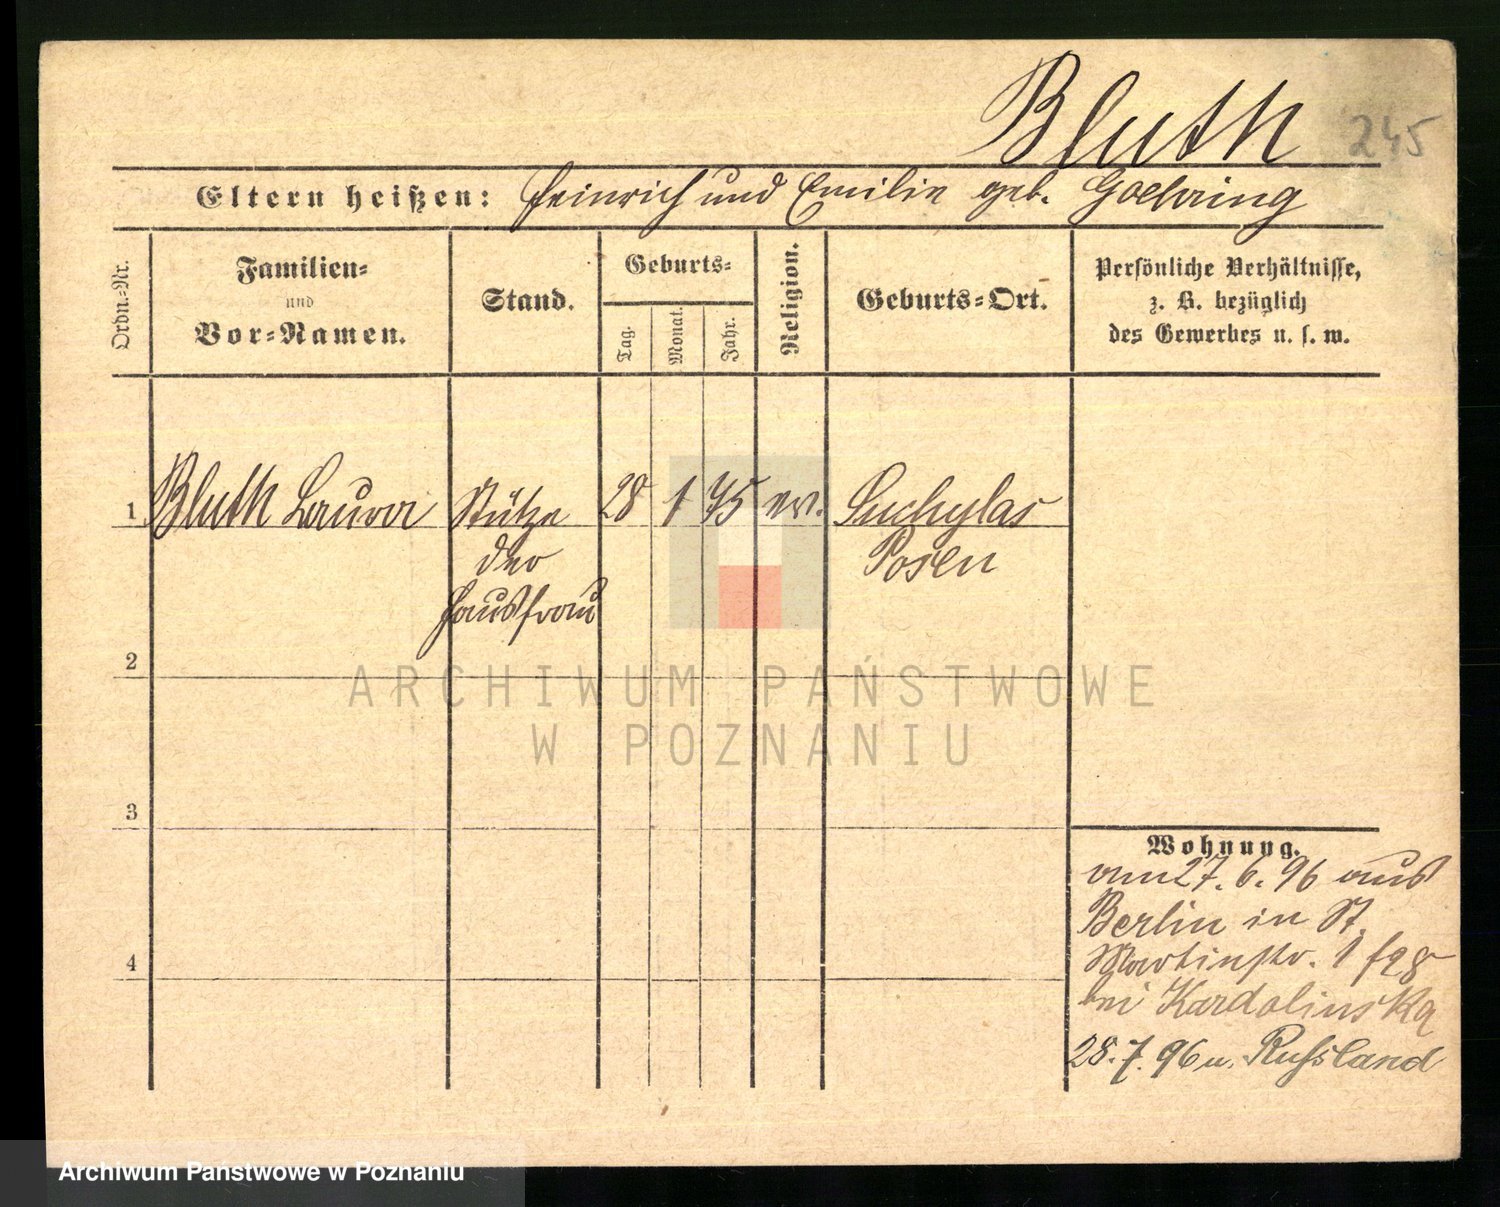 Bluth 245
Eltern heißen: Heinrich und Emilie geb. Goehring
Ordn.-Nr.
Familien-
und
Vor-Namen.
Stand.
Geburts-
Tag.
Monat.
Jahr.
Religion.
Geburts-Ort.
Persönliche Verhältnisse,
z. B. bezüglich
des Gewerbes u. s. w.
1 Bluth Laura Stütze 28 1 75 ev. Suchylas
der Posen
Hausfrau
2
ARCHIWUM PAŃSTWOWE
W POZNANIU
3
Wohnung.
vom 27. 6. 96 aus
Berlin in St.
4 Martinstr. 1
bei Kardolinska
28. 7. 96 n. Russland
Archiwum Państwowe w Poznaniu